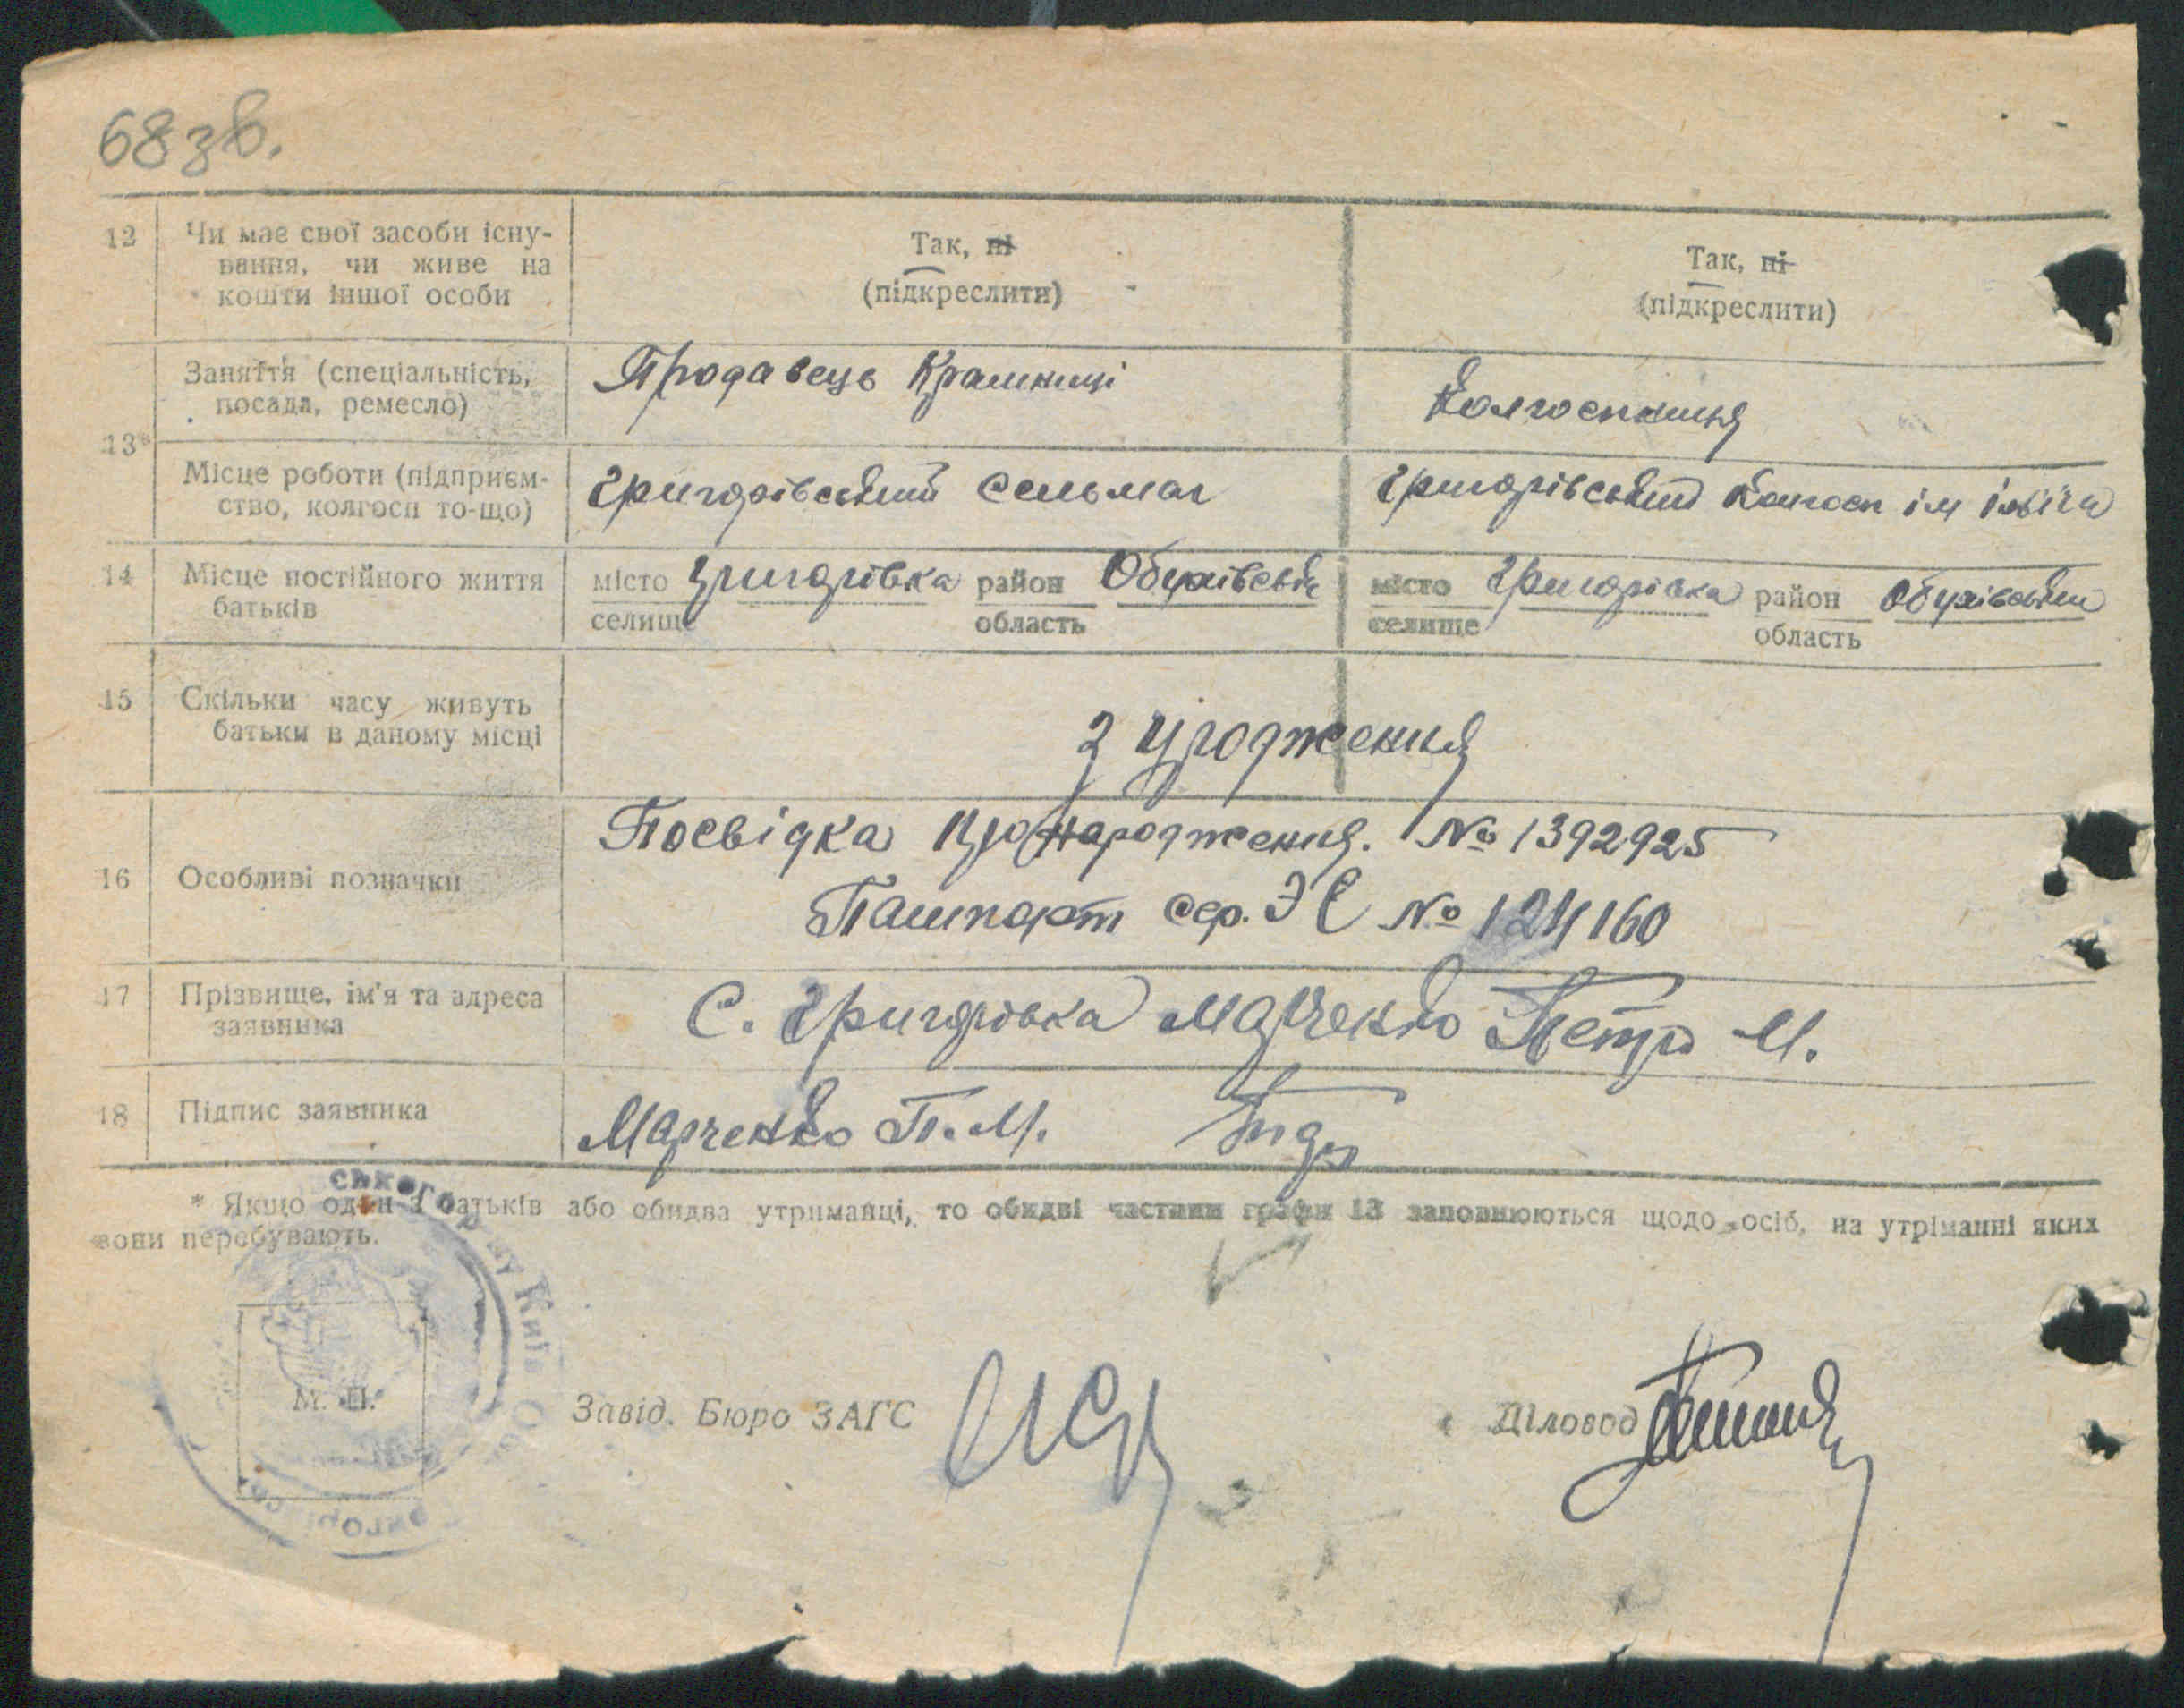 68 зв.
12 Чи має свої засоби існу-
вання, чи живе на
кошти іншої особи
Так, ні
(підкреслити)
Так, ні
(підкреслити)
13*
Заняття (спеціальність,
посада, ремесло)
Продавець Крамниці
Колгоспниця
Місце роботи (підприєм-
ство, колгосп то-що)
Григорівський Сельмаг
Григорівський Колгосп ім
14 Місце постійного життя
батьків
місто Григорівка район Обухівськ
селище область
місто Григорівка район Обухівський
селище область
15 Скільки часу живуть
батьки в даному місці
З уродження
16 Особливі позначки
Посвідка про народження. № 1392925
Пашпорт сер. ЭС № 124160
17 Прізвище, ім'я та адреса
заявника
С. Григорівка Марченко Петро М.
18 Підпис заявника
Марченко П. М.
* Якщо один з батьків або обидва утриманці, то обидві частини графи 13 заповнюються щодо осіб, на утріманні яких
вони перебувають.
М. П.
Завід. Бюро ЗАГС
Діловод